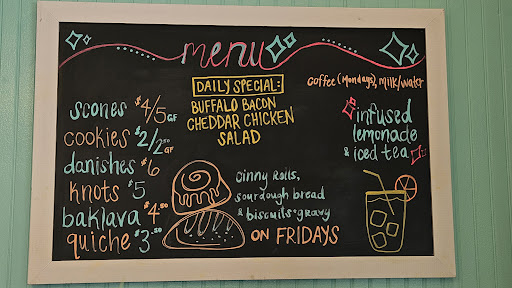 menu
DAILY SPECIAL:
BUFFALO BACON
CHEDDAR CHICKEN
SALAD
coffee (Mondays), milk/water
scones $4/5 GF
cookies $2/2.50 GF
danishes $6
knots $5
baklava $4.50
quiche $3.50
Cinny Rolls,
sourdough bread
& biscuits + gravy
ON FRIDAYS
infused
lemonade
& iced tea